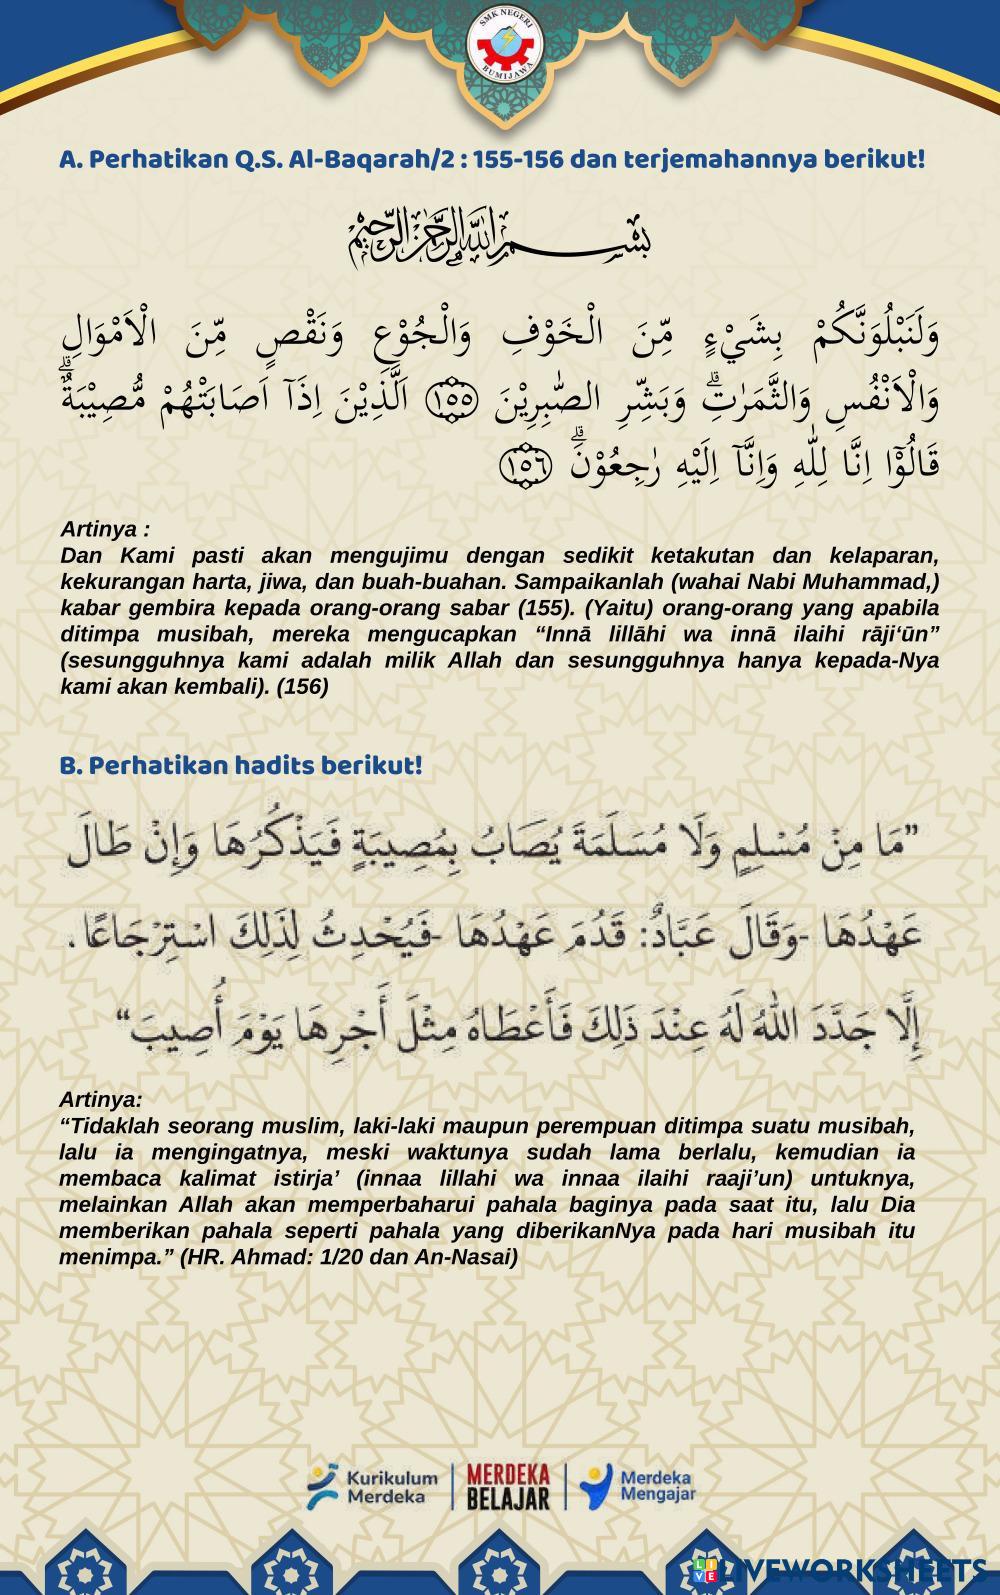 SMK NEGERI
BUMIJAWA
A. Perhatikan Q.S. Al-Baqarah/2 : 155-156 dan terjemahannya berikut!
بِسْمِ اللّٰهِ الرَّحْمٰنِ الرَّحِيْمِ
وَلَنَبْلُوَنَّكُمْ بِشَيْءٍ مِّنَ الْخَوْفِ وَالْجُوْعِ وَنَقْصٍ مِّنَ الْاَمْوَالِ
وَالْاَنْفُسِ وَالثَّمَرٰتِۗ وَبَشِّرِ الصّٰبِرِيْنَ ١٥٥ اَلَّذِيْنَ اِذَآ اَصَابَتْهُمْ مُّصِيْبَةٌۗ
قَالُوْٓا اِنَّا لِلّٰهِ وَاِنَّآ اِلَيْهِ رٰجِعُوْنَۗ ١٥٦
Artinya :
Dan Kami pasti akan mengujimu dengan sedikit ketakutan dan kelaparan,
kekurangan harta, jiwa, dan buah-buahan. Sampaikanlah (wahai Nabi Muhammad,)
kabar gembira kepada orang-orang sabar (155). (Yaitu) orang-orang yang apabila
ditimpa musibah, mereka mengucapkan “Innā lillāhi wa innā ilaihi rāji‘ūn”
(sesungguhnya kami adalah milik Allah dan sesungguhnya hanya kepada-Nya
kami akan kembali). (156)
B. Perhatikan hadits berikut!
”مَا مِنْ مُسْلِمٍ وَلَا مُسَلَمَةَ يُصَابُ بِمُصِيبَةٍ فَيَذْكُرُهَا وَإِنْ طَالَ
عَهْدُهَا -وَقَالَ عَبَّادٌ: قَدُمَ عَهْدُهَا -فَيُحْدِثُ لِذَلِكَ اسْتِرْجَاعًا.
إِلَّا جَدَّدَ اللهُ لَهُ عِنْدَ ذَلِكَ فَأَعْطَاهُ مِثْلَ أَجْرِهَا يَوْمَ أُصِيبَ“
Artinya:
“Tidaklah seorang muslim, laki-laki maupun perempuan ditimpa suatu musibah,
lalu ia mengingatnya, meski waktunya sudah lama berlalu, kemudian ia
membaca kalimat istirja’ (innaa lillahi wa innaa ilaihi raaji’un) untuknya,
melainkan Allah akan memperbaharui pahala baginya pada saat itu, lalu Dia
memberikan pahala seperti pahala yang diberikanNya pada hari musibah itu
menimpa.” (HR. Ahmad: 1/20 dan An-Nasai)
Kurikulum
Merdeka
MERDEKA
BELAJAR
Merdeka
Mengajar
LIVE LIVEWORKSHEETS